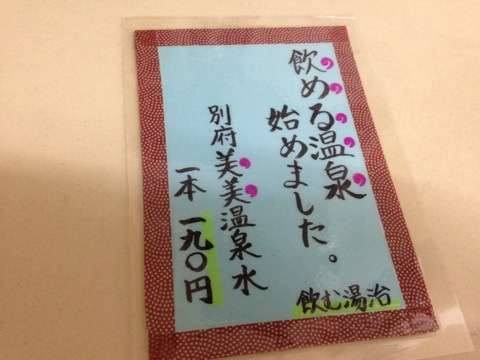 飲める温泉
始めました。
別府美美温泉水
一本一九〇円
飲む湯治